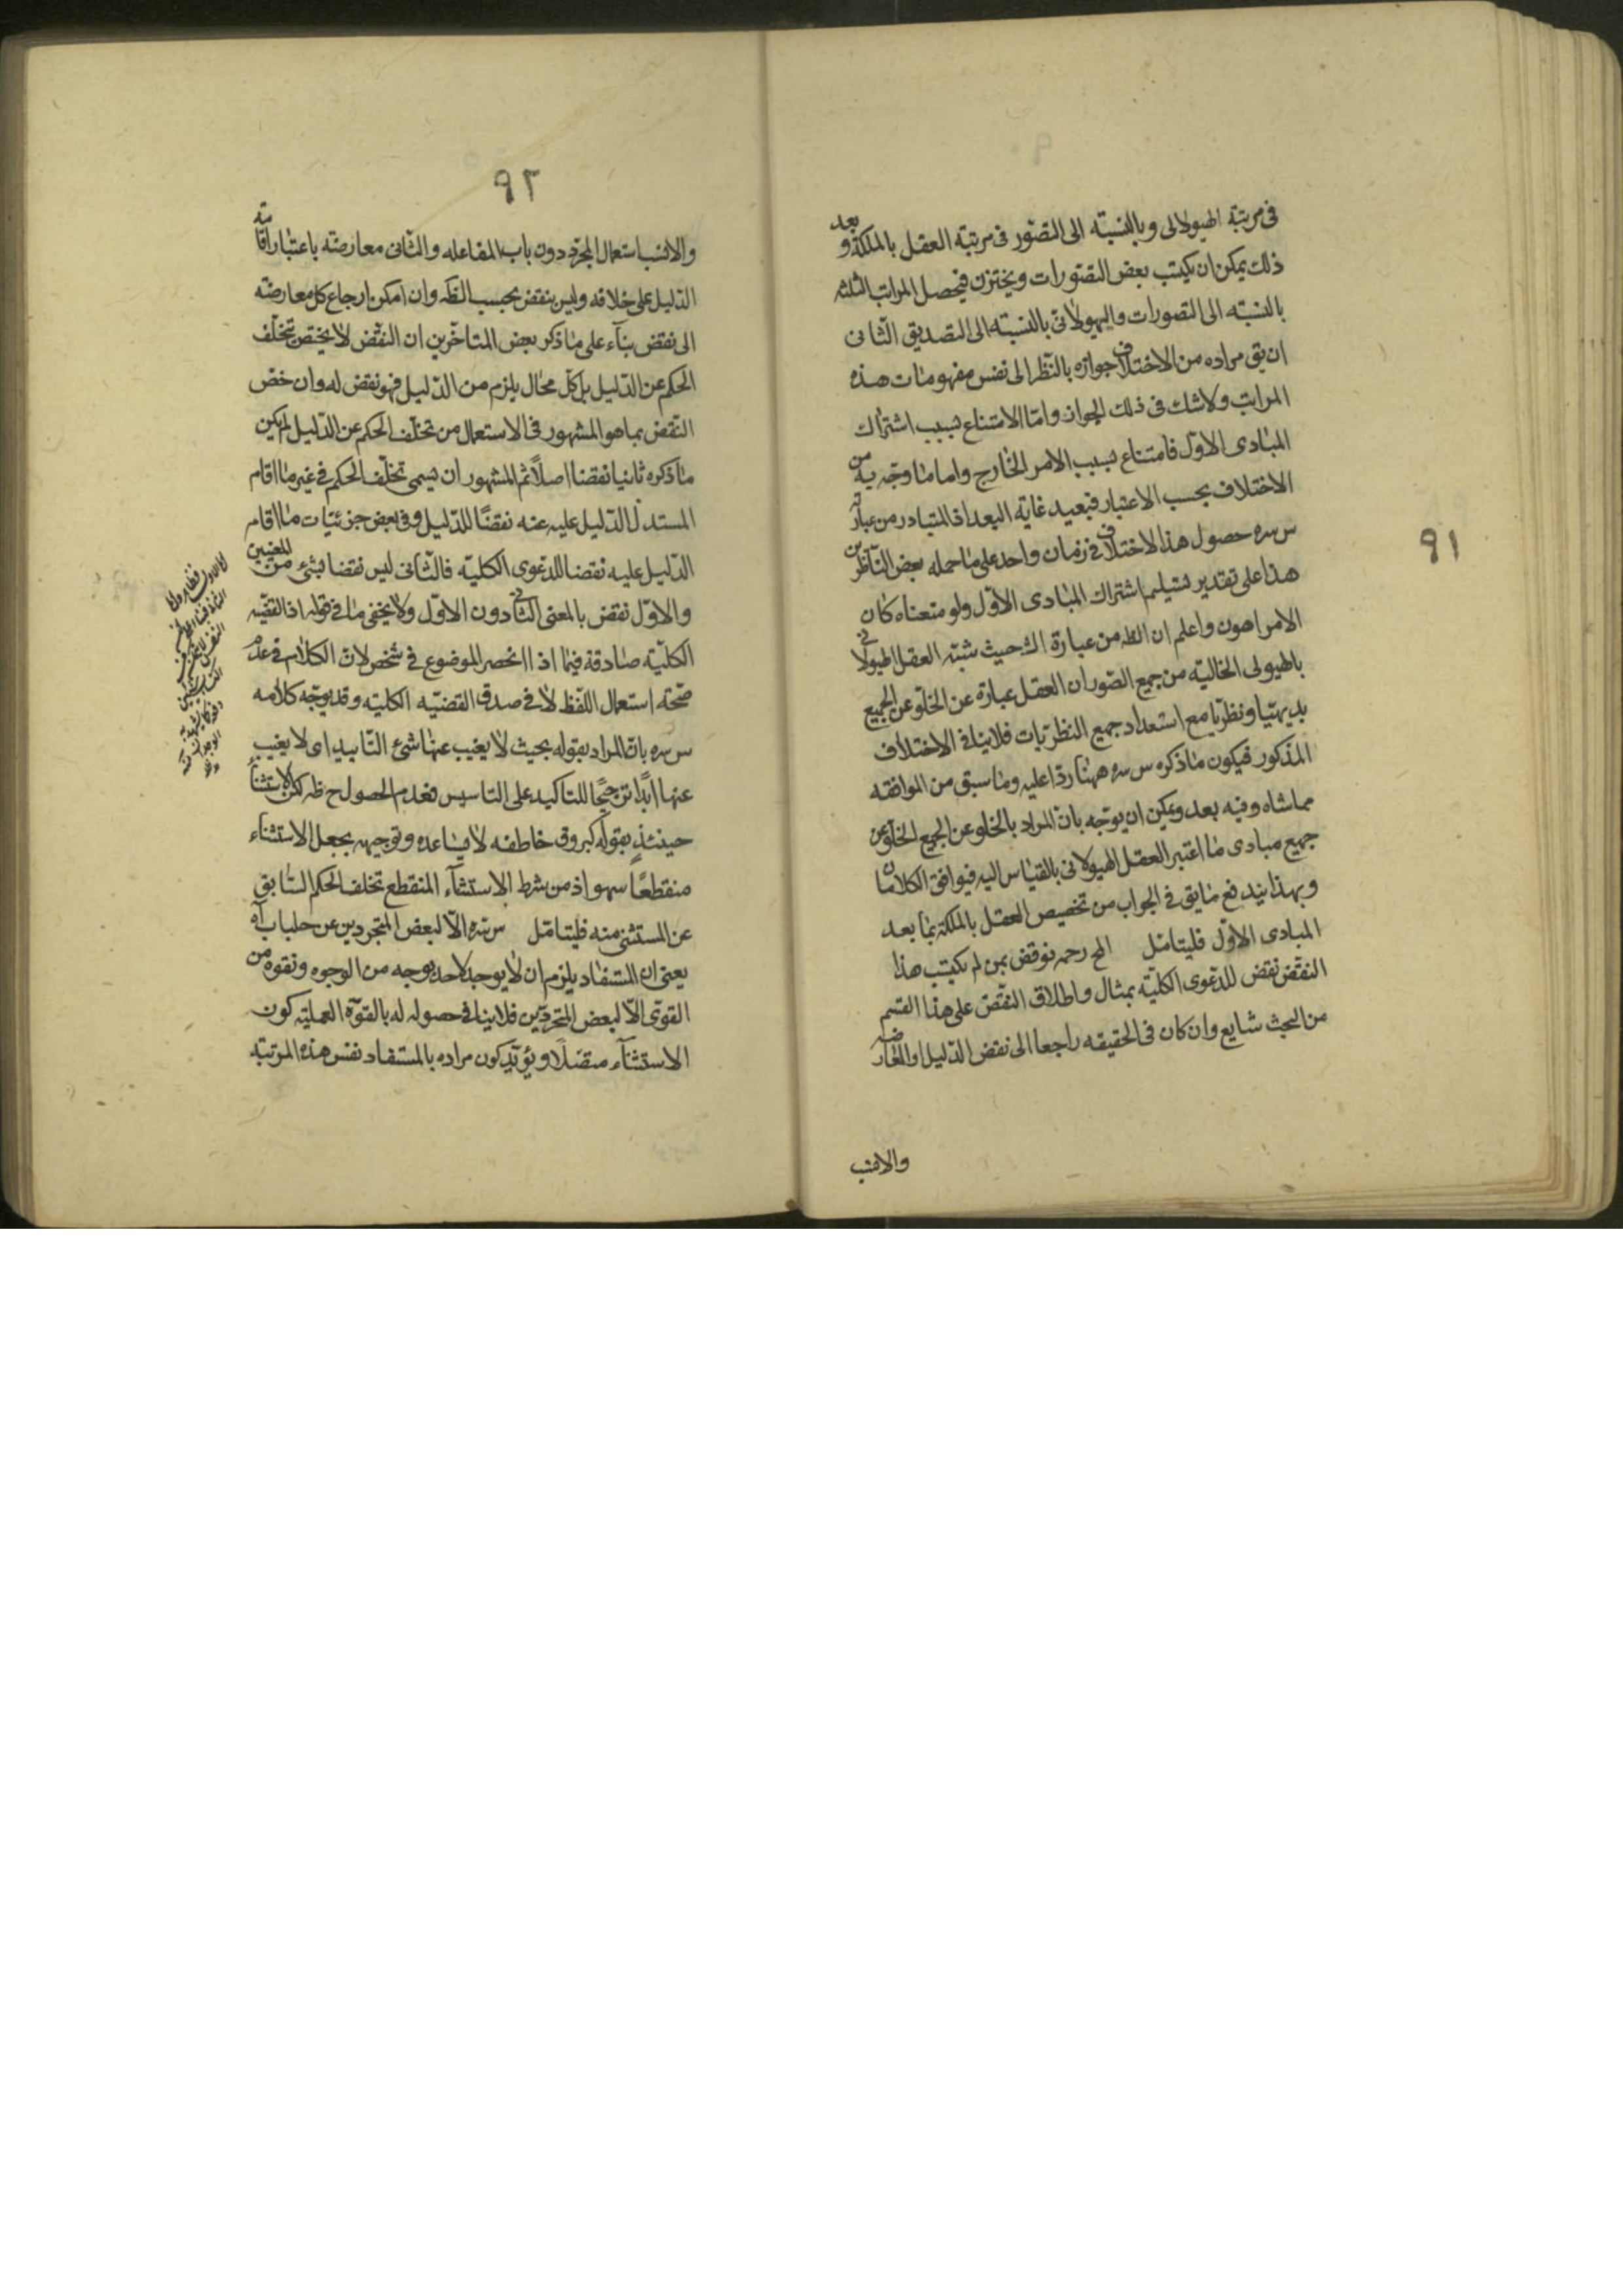 ٩١
فى مرتبة الهيولانى وبالنسبة الى التصور فى مرتبة العقل بالملكة وبعد
ذلك يمكن ان يكتسب بعض التصورات ويختزن فيحصل المراتب الثلثه
بالنسبة الى التصورات والهيولانى بالنسبة الى التصديق الثانى
ان يق مراده من الاختلاف جوازه بالنظر الى نفس مفهومات هذه
المراتب ولا شك فى ذلك الجواز واما الامتناع بسبب اشتراك
المبادى الاول فامتناع بسبب الامر الخارج واما ما وجه به من
الاختلاف بحسب الاعتبار فبعيد غاية البعد اذ المتبادر من عبارته
س سره حصول هذا الاختلاف فى زمان واحد على ما حمله بعض الناظرين
هذا على تقدير تسليم اشتراك المبادى الاول ولو منعناه كان
الامر اهون واعلم ان الظ من عبارة الش حيث شبه العقل الهيولانى
بالهيولى الخالية من جميع الصور ان العقل عبارة عن الخلو عن الجميع
بديهيا ونظريا مع استعداد جميع النظريات فلا ينافى الاختلاف
المذكور فيكون ما ذكره س سره ههنا ردا عليه وما سبق من الموافقه
مماشاه وفيه بعد ويمكن ان يوجه بان المراد بالخلو عن الجميع الخلو عن
جميع مبادى ما اعتبر العقل الهيولانى بالقياس اليه فيوافق الكلامان
وبهذا يندفع ما يق فى الجواب من تخصيص العقل بالملكة بما بعد
المبادى الاول فليتامل المح رحمه نوقض بمن لم يكتسب هذا
النقض نقض للدعوى الكلية بمثال واطلاق النقض على هذا القسم
من البحث شايع وان كان فى الحقيقه راجعا الى نقض الدليل او المعارضه
والانسب
٩٢
والانسب استعمال المجرد دون باب المفاعله والثانى معارضة باعتبار اقامة
الدليل على خلافه وليس بنقض بحسب الظ وان امكن ارجاع كل معارضة
الى نقض بناء على ما ذكر بعض المتاخرين ان النقض لا يختص بتخلف
الحكم عن الدليل بل كل محال يلزم من الدليل فهو نقض له وان خص
النقض بما هو المشهور فى الاستعمال من تخلف الحكم عن الدليل لم يكن
ما ذكره ثانيا نقضا اصلا ثم المشهور ان يسمى تخلف الحكم فى غير ما اقام
المستدل الدليل عليه عنه نقضا للدليل وفى بعض جزئيات ما اقام
الدليل عليه نقضا للدعوى الكلية فالثانى ليس نقضا بشئ من المعنيين
والاول نقض بالمعنى الثانى دون الاول ولا يخفى ما فى قوله اذ القضيه
الكلية صادقة فيما اذا انحصر الموضوع فى شخص لان الكلام فى عدم
صحة استعمال اللفظ لا فى صدق القضيه الكلية وقد يوجه كلامه
س سره بان المراد بقوله بحيث لا يغيب عنها شئ التابيد اى لا يغيب
عنها ابدا ترجيحا للتاكيد على التاسيس فعدم الحصول ح ظ لكن الاستثناء
حينئذ بقوله كبروق خاطفه لا يساعده وتوجيهه بجعل الاستثناء
منقطعا سهو اذ من شرط الاستثناء المنقطع تخلف الحكم السابق
عن المستثنى منه فليتامل س سره الا لبعض المتجردين عن جلباب آه
يعنى ان المستفاد يلزم ان لا يوجد لاحد بوجه من الوجوه وبقوه من
القوى الا لبعض المتجردين فلا ينافى حصوله له بالقوة العمليه كون
الاستثناء متصلا ويؤيد كون مراده بالمستفاد نفس هذه المرتبة